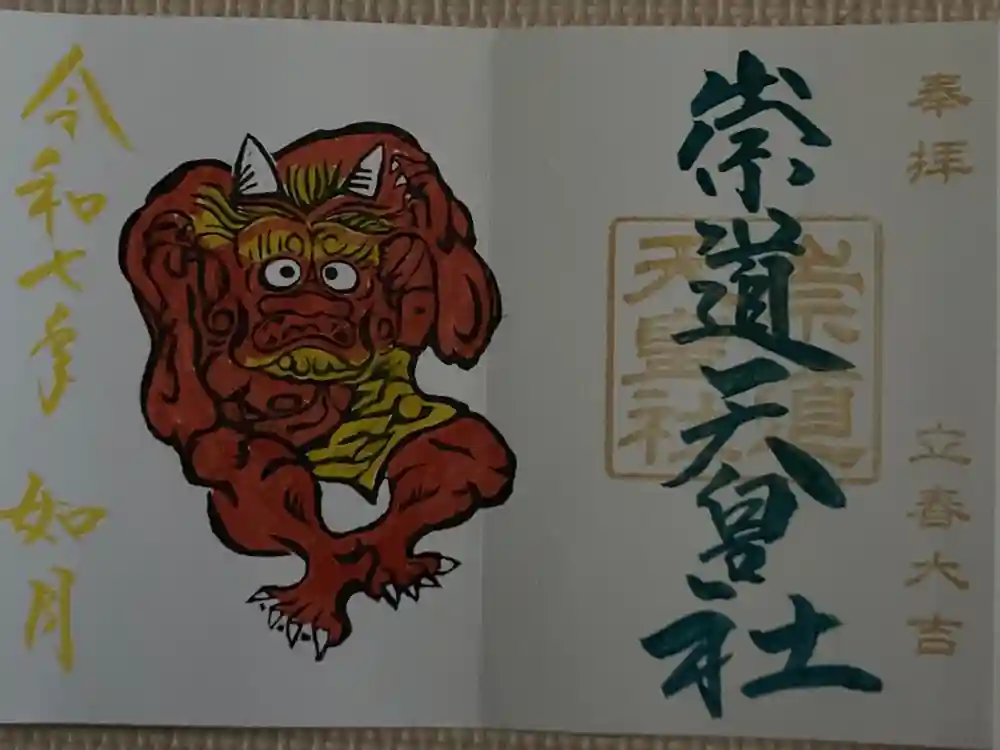 奉拝
立春大吉
崇道天皇社
崇道
天皇社
令和七年
如月